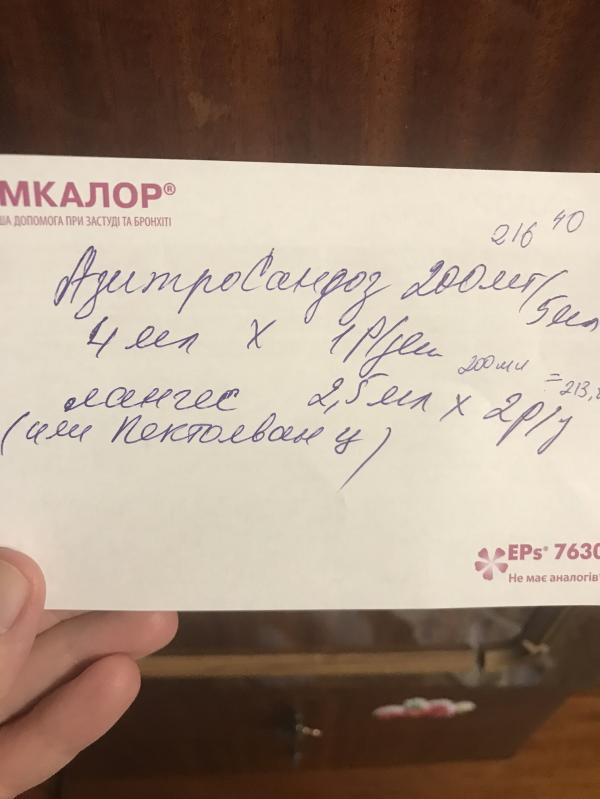 МКАЛОР®
ША ДОПОМОГА ПРИ ЗАСТУДІ ТА БРОНХІТІ
216 40
АзитроСандоз 200мг/5мл
4 мл х 1Р/ден
200мл = 213,
лангес 2,5мл х 2р/
(или Пектолван ц)
EPs® 7630
Не має аналогів